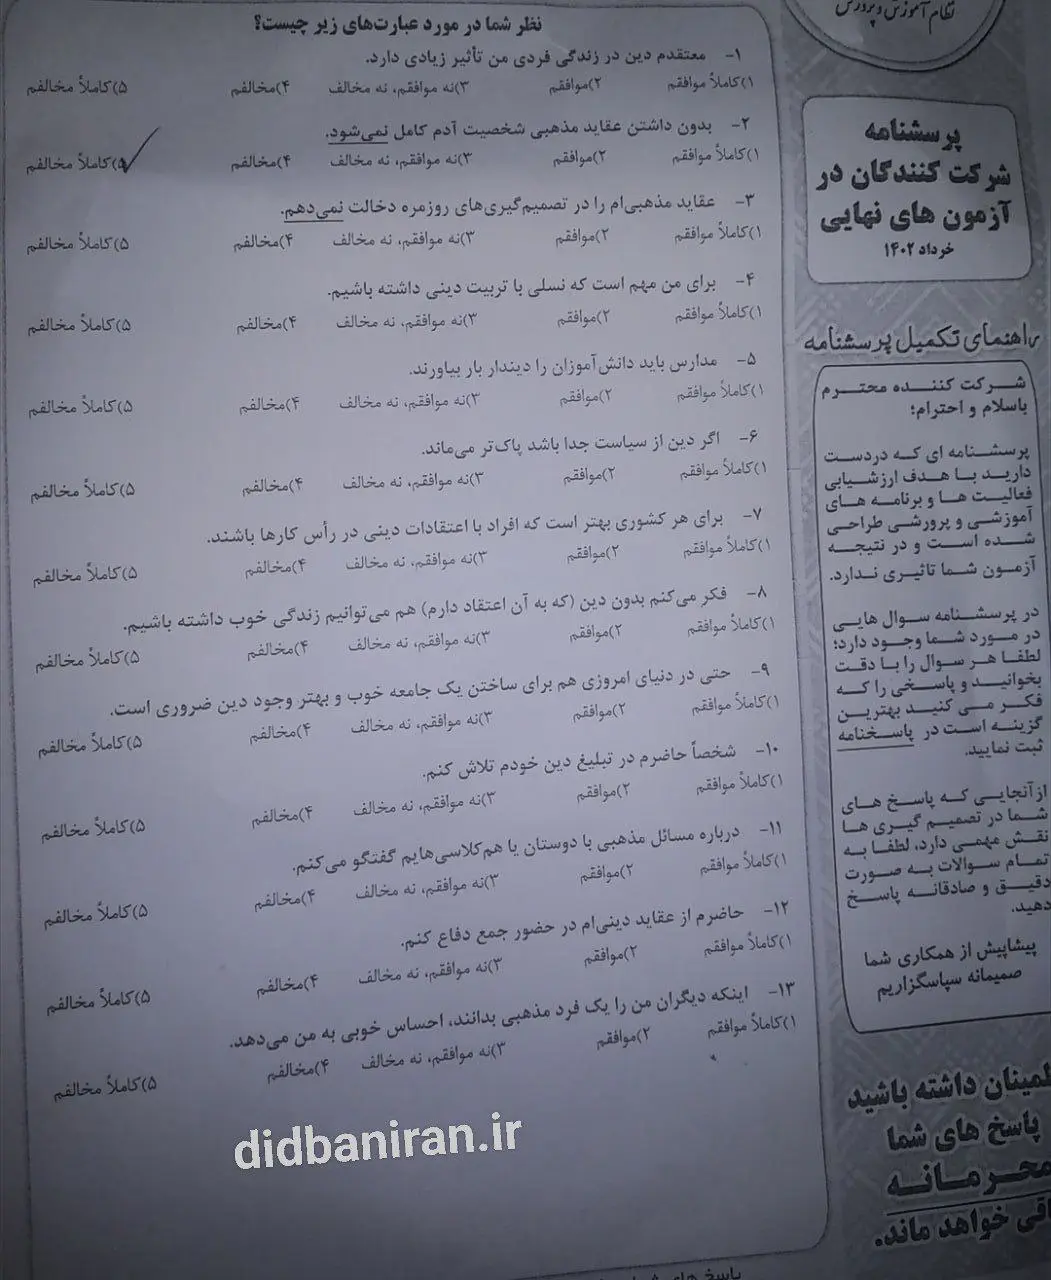 نظر شما در مورد عبارت‌های زیر چیست؟
۱- معتقدم دین در زندگی فردی من تأثیر زیادی دارد.
۱)کاملاً موافقم ۲)موافقم ۳)نه موافقم، نه مخالف ۴)مخالفم ۵)کاملاً مخالفم
۲- بدون داشتن عقاید مذهبی شخصیت آدم کامل نمی‌شود.
۱)کاملاً موافقم ۲)موافقم ۳)نه موافقم، نه مخالف ۴)مخالفم ۵)کاملاً مخالفم
۳- عقاید مذهبی‌ام را در تصمیم‌گیری‌های روزمره دخالت نمی‌دهم.
۱)کاملاً موافقم ۲)موافقم ۳)نه موافقم، نه مخالف ۴)مخالفم ۵)کاملاً مخالفم
۴- برای من مهم است که نسلی با تربیت دینی داشته باشیم.
۱)کاملاً موافقم ۲)موافقم ۳)نه موافقم، نه مخالف ۴)مخالفم ۵)کاملاً مخالفم
۵- مدارس باید دانش‌آموزان را دیندار بار بیاورند.
۱)کاملاً موافقم ۲)موافقم ۳)نه موافقم، نه مخالف ۴)مخالفم ۵)کاملاً مخالفم
۶- اگر دین از سیاست جدا باشد پاک‌تر می‌ماند.
۱)کاملاً موافقم ۲)موافقم ۳)نه موافقم، نه مخالف ۴)مخالفم ۵)کاملاً مخالفم
۷- برای هر کشوری بهتر است که افراد با اعتقادات دینی در رأس کارها باشند.
۱)کاملاً موافقم ۲)موافقم ۳)نه موافقم، نه مخالف ۴)مخالفم ۵)کاملاً مخالفم
۸- فکر می‌کنم بدون دین (که به آن اعتقاد دارم) هم می‌توانیم زندگی خوب داشته باشیم.
۱)کاملاً موافقم ۲)موافقم ۳)نه موافقم، نه مخالف ۴)مخالفم ۵)کاملاً مخالفم
۹- حتی در دنیای امروزی هم برای ساختن یک جامعه خوب و بهتر وجود دین ضروری است.
۱)کاملاً موافقم ۲)موافقم ۳)نه موافقم، نه مخالف ۴)مخالفم ۵)کاملاً مخالفم
۱۰- شخصاً حاضرم در تبلیغ دین خودم تلاش کنم.
۱)کاملاً موافقم ۲)موافقم ۳)نه موافقم، نه مخالف ۴)مخالفم ۵)کاملاً مخالفم
۱۱- درباره مسائل مذهبی با دوستان یا هم‌کلاسی‌هایم گفتگو می‌کنم.
۱)کاملاً موافقم ۲)موافقم ۳)نه موافقم، نه مخالف ۴)مخالفم ۵)کاملاً مخالفم
۱۲- حاضرم از عقاید دینی‌ام در حضور جمع دفاع کنم.
۱)کاملاً موافقم ۲)موافقم ۳)نه موافقم، نه مخالف ۴)مخالفم ۵)کاملاً مخالفم
۱۳- اینکه دیگران من را یک فرد مذهبی بدانند، احساس خوبی به من می‌دهد.
۱)کاملاً موافقم ۲)موافقم ۳)نه موافقم، نه مخالف ۴)مخالفم ۵)کاملاً مخالفم
didbaniran.ir
نظام آموزش و پرورش
پرسشنامه
شرکت کنندگان در
آزمون های نهایی
خرداد ۱۴۰۲
راهنمای تکمیل پرسشنامه
شرکت کننده محترم
باسلام و احترام؛
پرسشنامه ای که دردست
دارید با هدف ارزشیابی
فعالیت ها و برنامه های
آموزشی و پرورشی طراحی
شده است و در نتیجه
آزمون شما تاثیری ندارد.
در پرسشنامه سوال هایی
در مورد شما وجود دارد؛
لطفا هر سوال را با دقت
بخوانید و پاسخی را که
فکر می کنید بهترین
گزینه است در پاسخنامه
ثبت نمایید.
ازآنجایی که پاسخ های
شما در تصمیم گیری ها
نقش مهمی دارد، لطفا به
تمام سوالات به صورت
دقیق و صادقانه پاسخ
دهید.
پیشاپیش از همکاری شما
صمیمانه سپاسگزاریم
داشته باشید
پاسخ های شما
محرمانه
خواهد ماند.